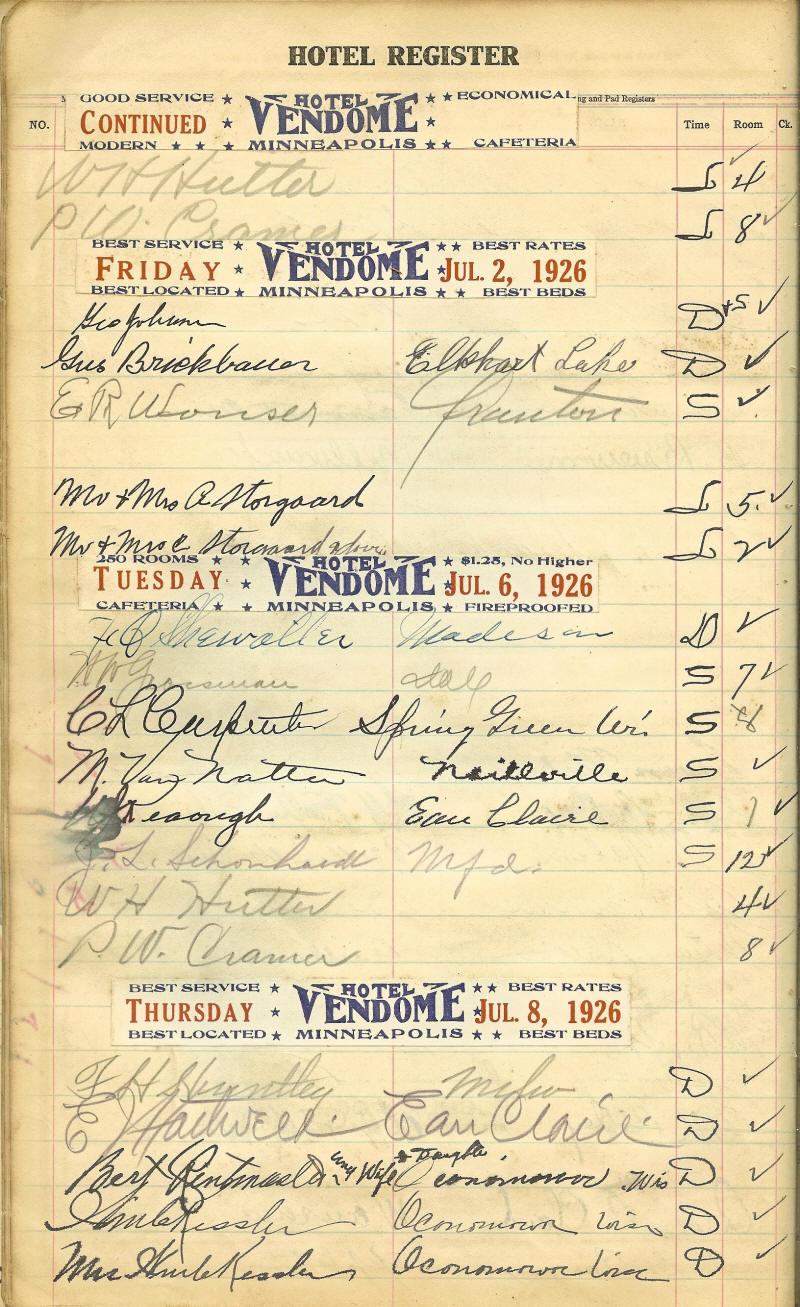 HOTEL REGISTER
GOOD SERVICE ★ HOTEL ★ ★ ECONOMICAL
ng and Pad Registers
NO. CONTINUED ★ VENDOME ★ Time Room Ck.
MODERN ★ ★ ★ MINNEAPOLIS ★ ★ CAFETERIA
W H Hutter L 4 ✓
P. W. Cramer L 8 ✓
BEST SERVICE ★ HOTEL ★ ★ BEST RATES
FRIDAY ★ VENDOME ★ JUL. 2, 1926
BEST LOCATED ★ MINNEAPOLIS ★ ★ BEST BEDS
Geo Johnson D 5 ✓
Gus Brickbauer Elkhart Lake D ✓
E R Wonser S ✓
Mr + Mrs A Storgaard L 5. ✓
Mr & Mrs C Storgaard above L 2 ✓
250 ROOMS ★ HOTEL ★ $1.25, No Higher
TUESDAY ★ VENDOME ★ JUL. 6, 1926
CAFETERIA ★ ★ MINNEAPOLIS ★ FIREPROOFED
Madison D ✓
Grossman S 7 ✓
C L Carpenter Spring Green Wis S
M. Van Natten Neillville S ✓
Keaough Eau Claire S 1 ✓
J. L. Schonhardt Mfd. S 12 ✓
W H Hutter 4 ✓
P. W. Cramer 8 ✓
BEST SERVICE ★ HOTEL ★ ★ BEST RATES
THURSDAY ★ VENDOME ★ JUL. 8, 1926
BEST LOCATED ★ MINNEAPOLIS ★ ★ BEST BEDS
F H Huntley D ✓
E Eau Claire D ✓
Bert Rentmaster Wife + Daughter Oconomowoc Wis D ✓
Kessler Oconomowoc Wis D ✓
Mrs Kessler Oconomowoc Wis D ✓